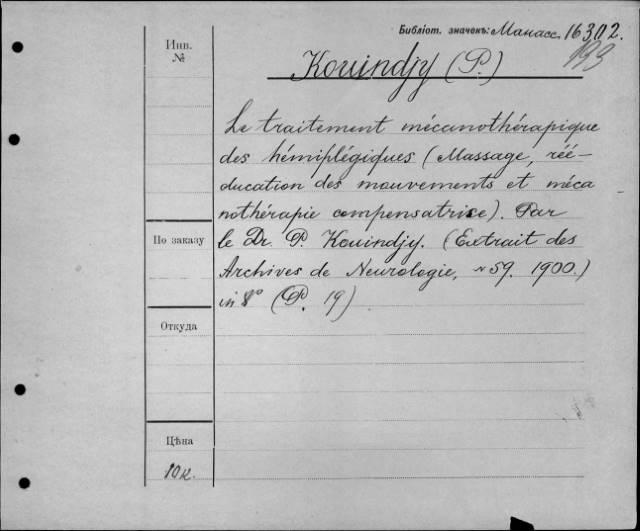 Библіот. значекъ: Манасс. 16302.
193
Инв.
№
Kouindjy (P.)
Le traitement mécanothérapique
des hémiplégiques (Massage, réé-
ducation des mouvements et méca
nothérapie compensatrice). Par
По заказу
le Dr. P. Kouindjy. (Extrait des
Archives de Neurologie, № 59. 1900.)
in 8° (P. 19)
Откуда
Цѣна
10к.